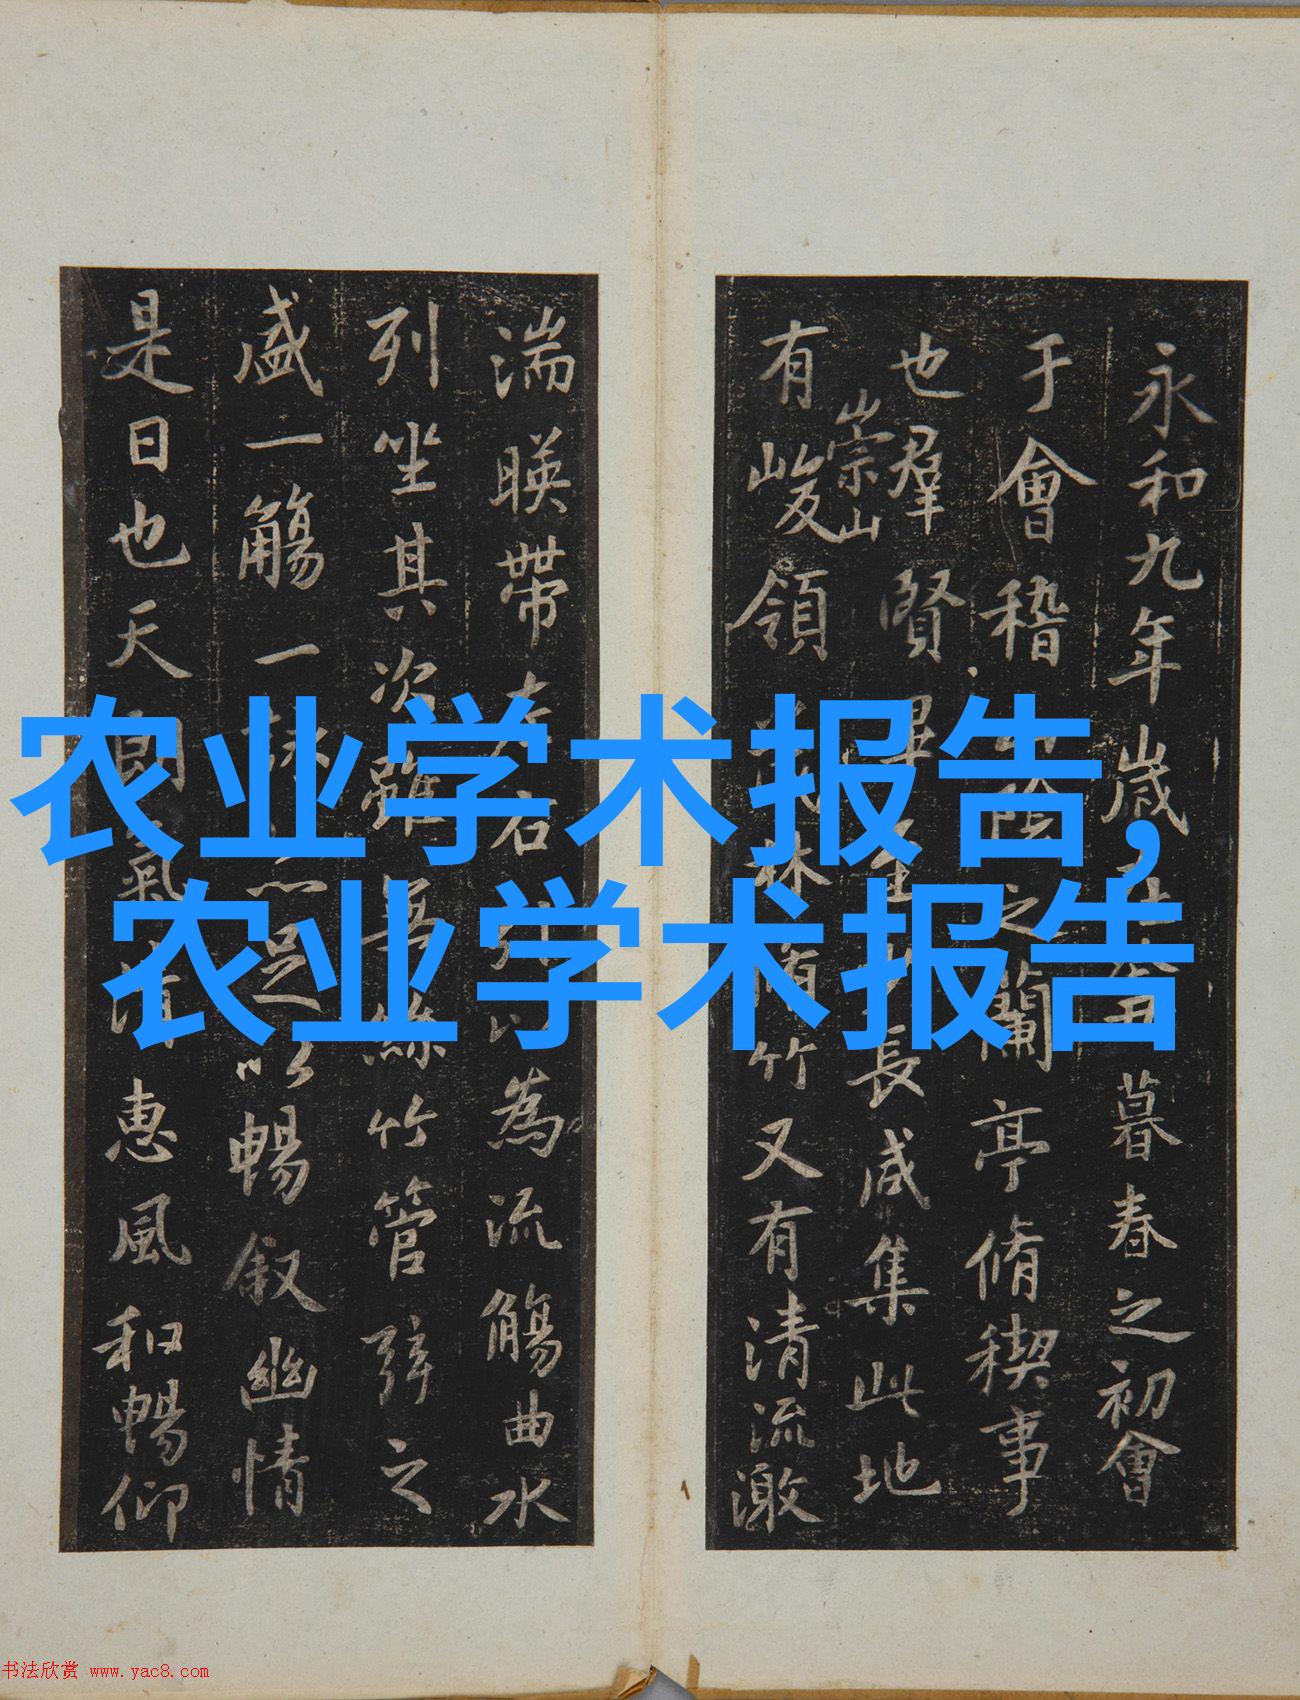 永和九年歲暮春之初會
于會稽陰之蘭亭脩禊事
也羣賢畢至長咸集此地
崇山
有峻領茂林脩竹又有清流激
湍暎帶左右為流觴曲水
列坐其次雖無絲竹管弦之
盛一觴一詠足以暢叙幽情
是日也天朗氣清惠風和暢仰
农业学术报告,
农业学术报告
书法欣赏 www.yac8.com